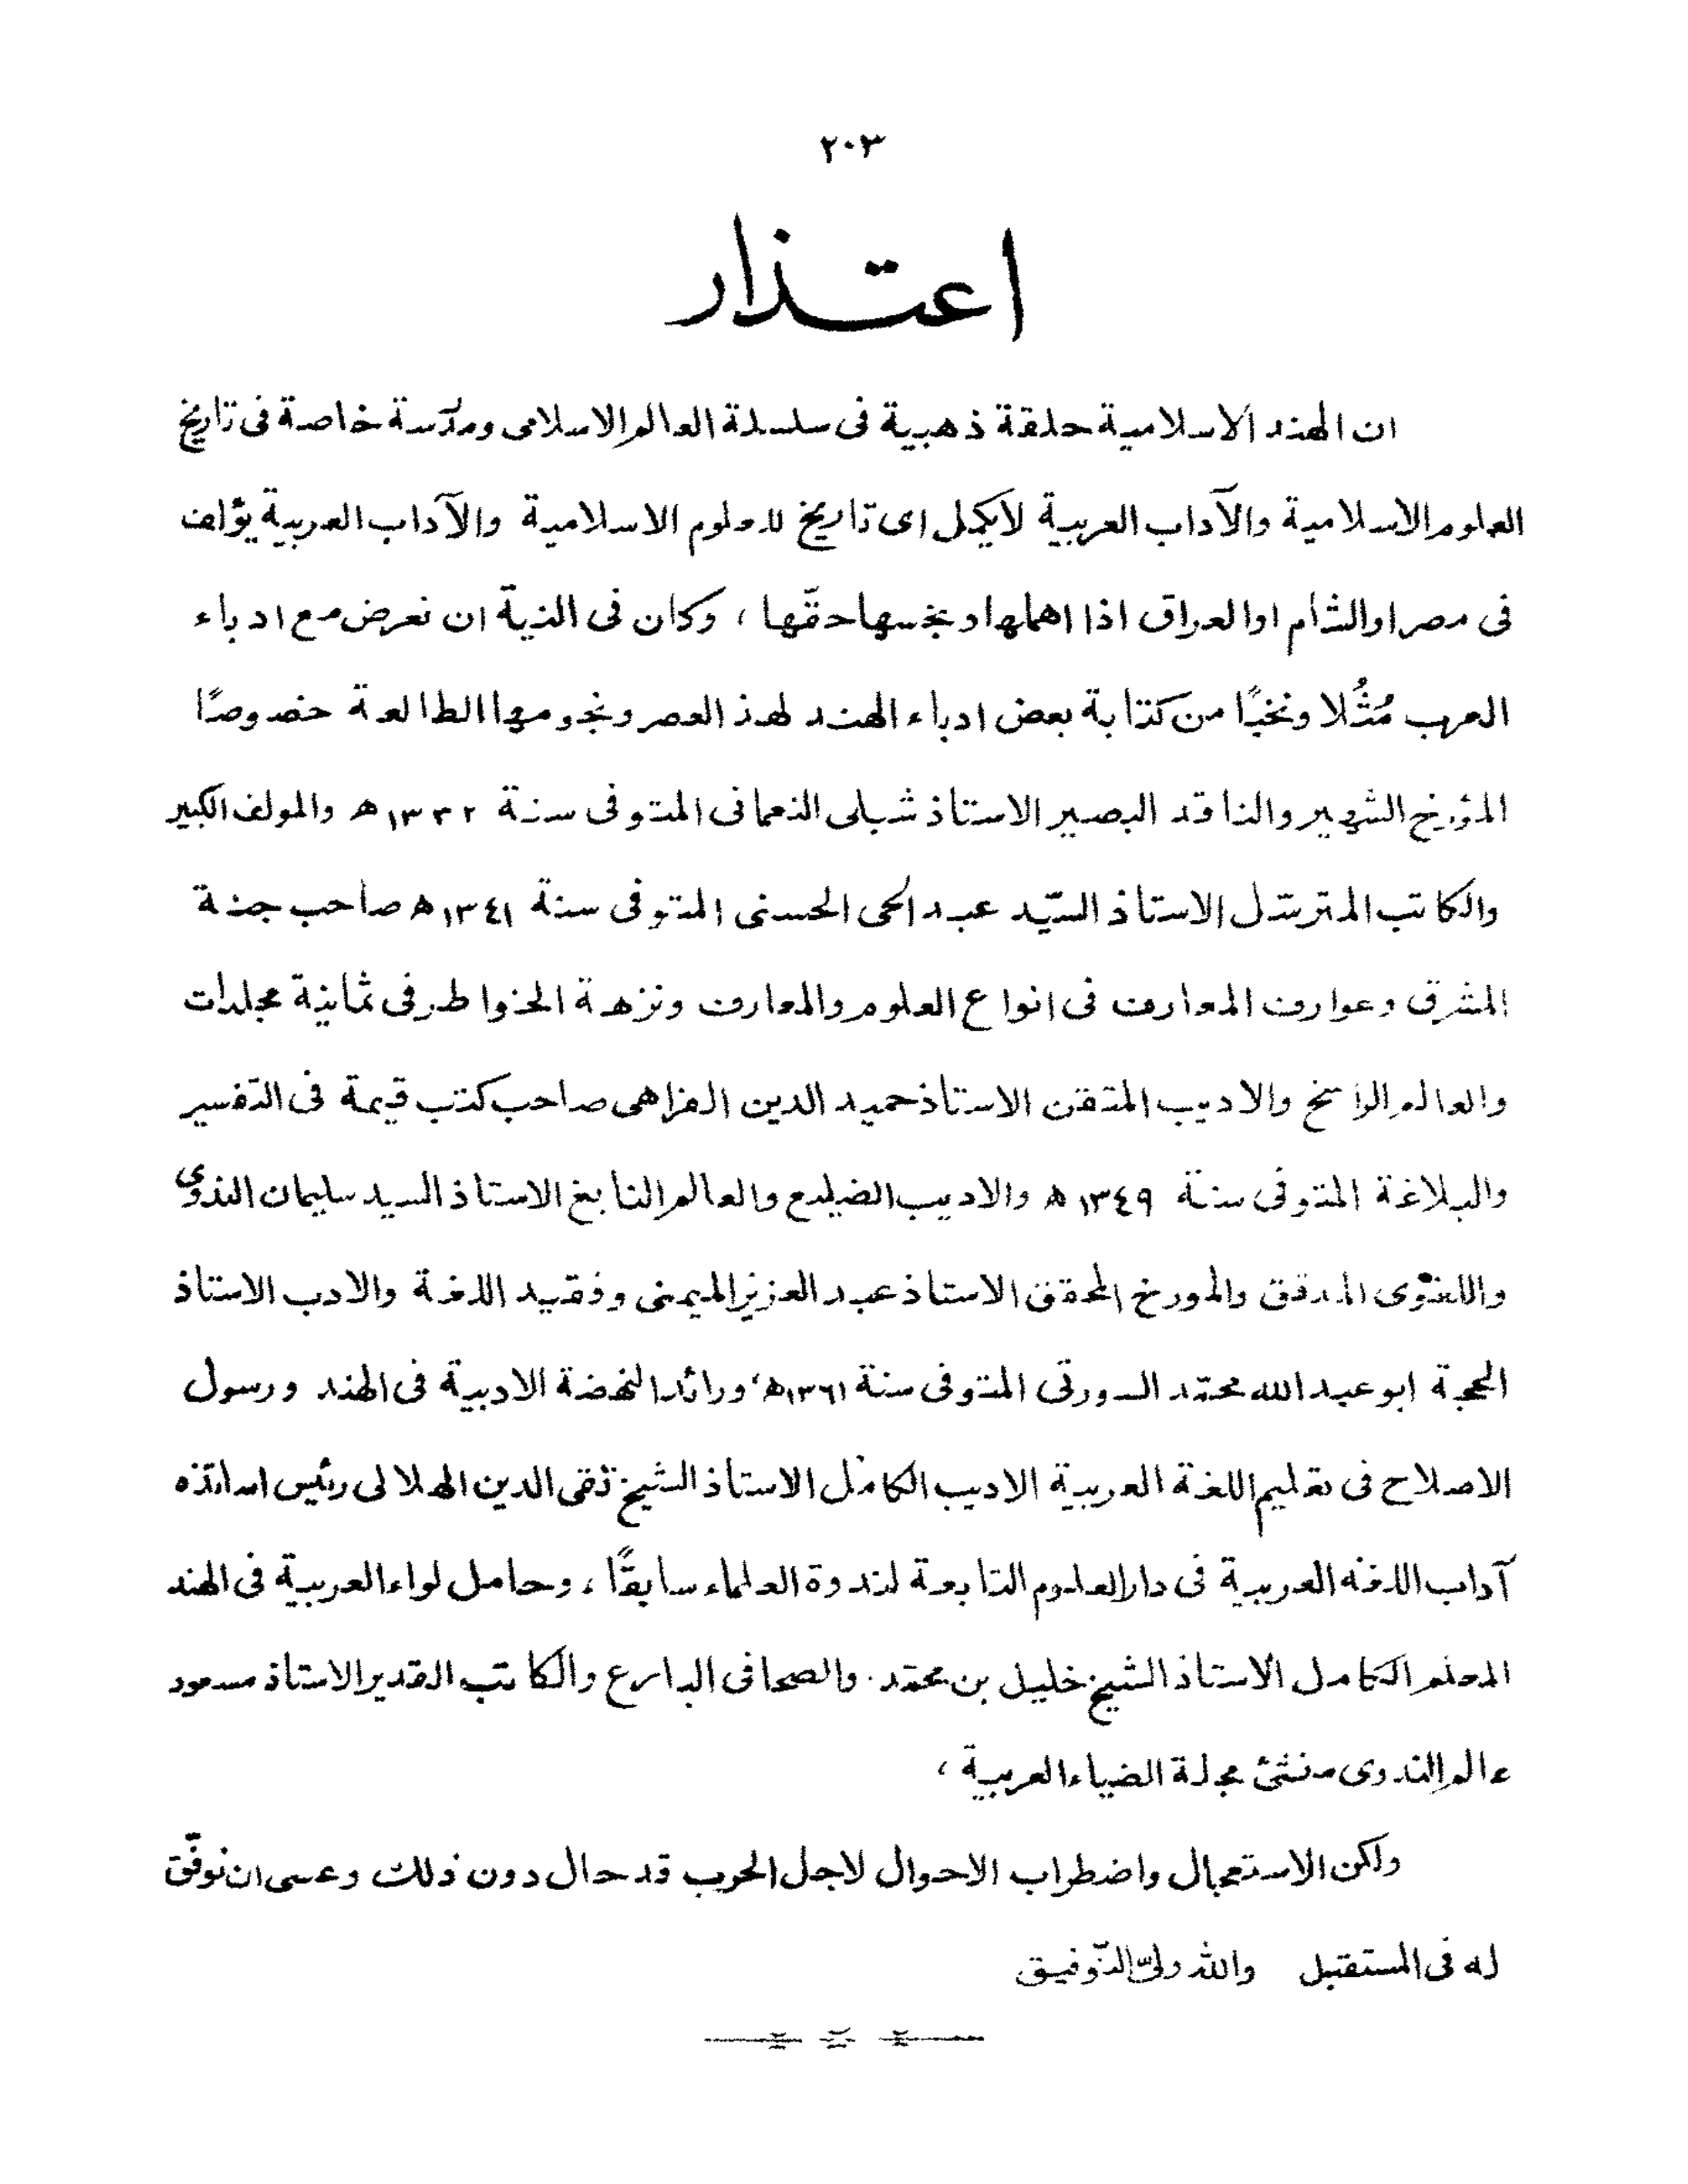 ٢٠٣
اعتذار
ان الهند الاسلامية حلقة ذهبية فى سلسلة العالم الاسلامى ومدرسة خاصة فى تاريخ
العلوم الاسلامية والآداب العربية لايكمل اى تاريخ للعلوم الاسلامية والآداب العربية يؤلف
فى مصر او الشام او العراق اذا اهملها او بخسها حقّها ، وكان فى النية ان نعرض مع ادباء
العرب مُثُلا ونخبًا من كتابة بعض ادباء الهند لهذ العصر ونجومها الطالعة خصوصًا
المؤرخ الشهير والناقد البصير الاستاذ شبلى النعمانى المتوفى سنة ١٣٣٢ھ والمولف الكبير
والكاتب المترسّل الاستاذ السيّد عبد الحى الحسنى المتوفى سنة ١٣٤١ھ صاحب جنة
المشرق وعوارف المعارف فى انواع العلوم والمعارف ونزهة الخواطر فى ثمانية مجلدات
والعالم الراسخ والاديب المتقن الاستاذ حميد الدين الفراهى صاحب كتب قيمة فى التفسير
والبلاغة المتوفى سنة ١٣٤٩ھ والاديب الضليع والعالم النابغ الاستاذ السيد سليمان الندوى
واللغوى المدقق والمورخ المحقق الاستاذ عبد العزيز الميمنى وفقيد اللغة والادب الاستاذ
الحجة ابو عبد الله محمّد السورتى المتوفى سنة ١٣٦١ھ، ورائد النهضة الادبية فى الهند ورسول
الاصلاح فى تعليم اللغة العربية الاديب الكامل الاستاذ الشيخ تقى الدين الهلالى رئيس اساتذه
آداب اللغه العربية فى دار العلوم التابعة لندوة العلماء سابقًا ، وحامل لواء العربية فى الهند
المعلم الكامل الاستاذ الشيخ خليل بن محمّد. والصحافى البارع والكاتب القدير الاستاذ مسعود
عالم الندوى منشئ مجلة الضياء العربية ،
ولكن الاستعجال واضطراب الاحوال لاجل الحرب قد حال دون ذلك وعسى ان نوفّق
له فى المستقبل والله ولىّ التّوفيق